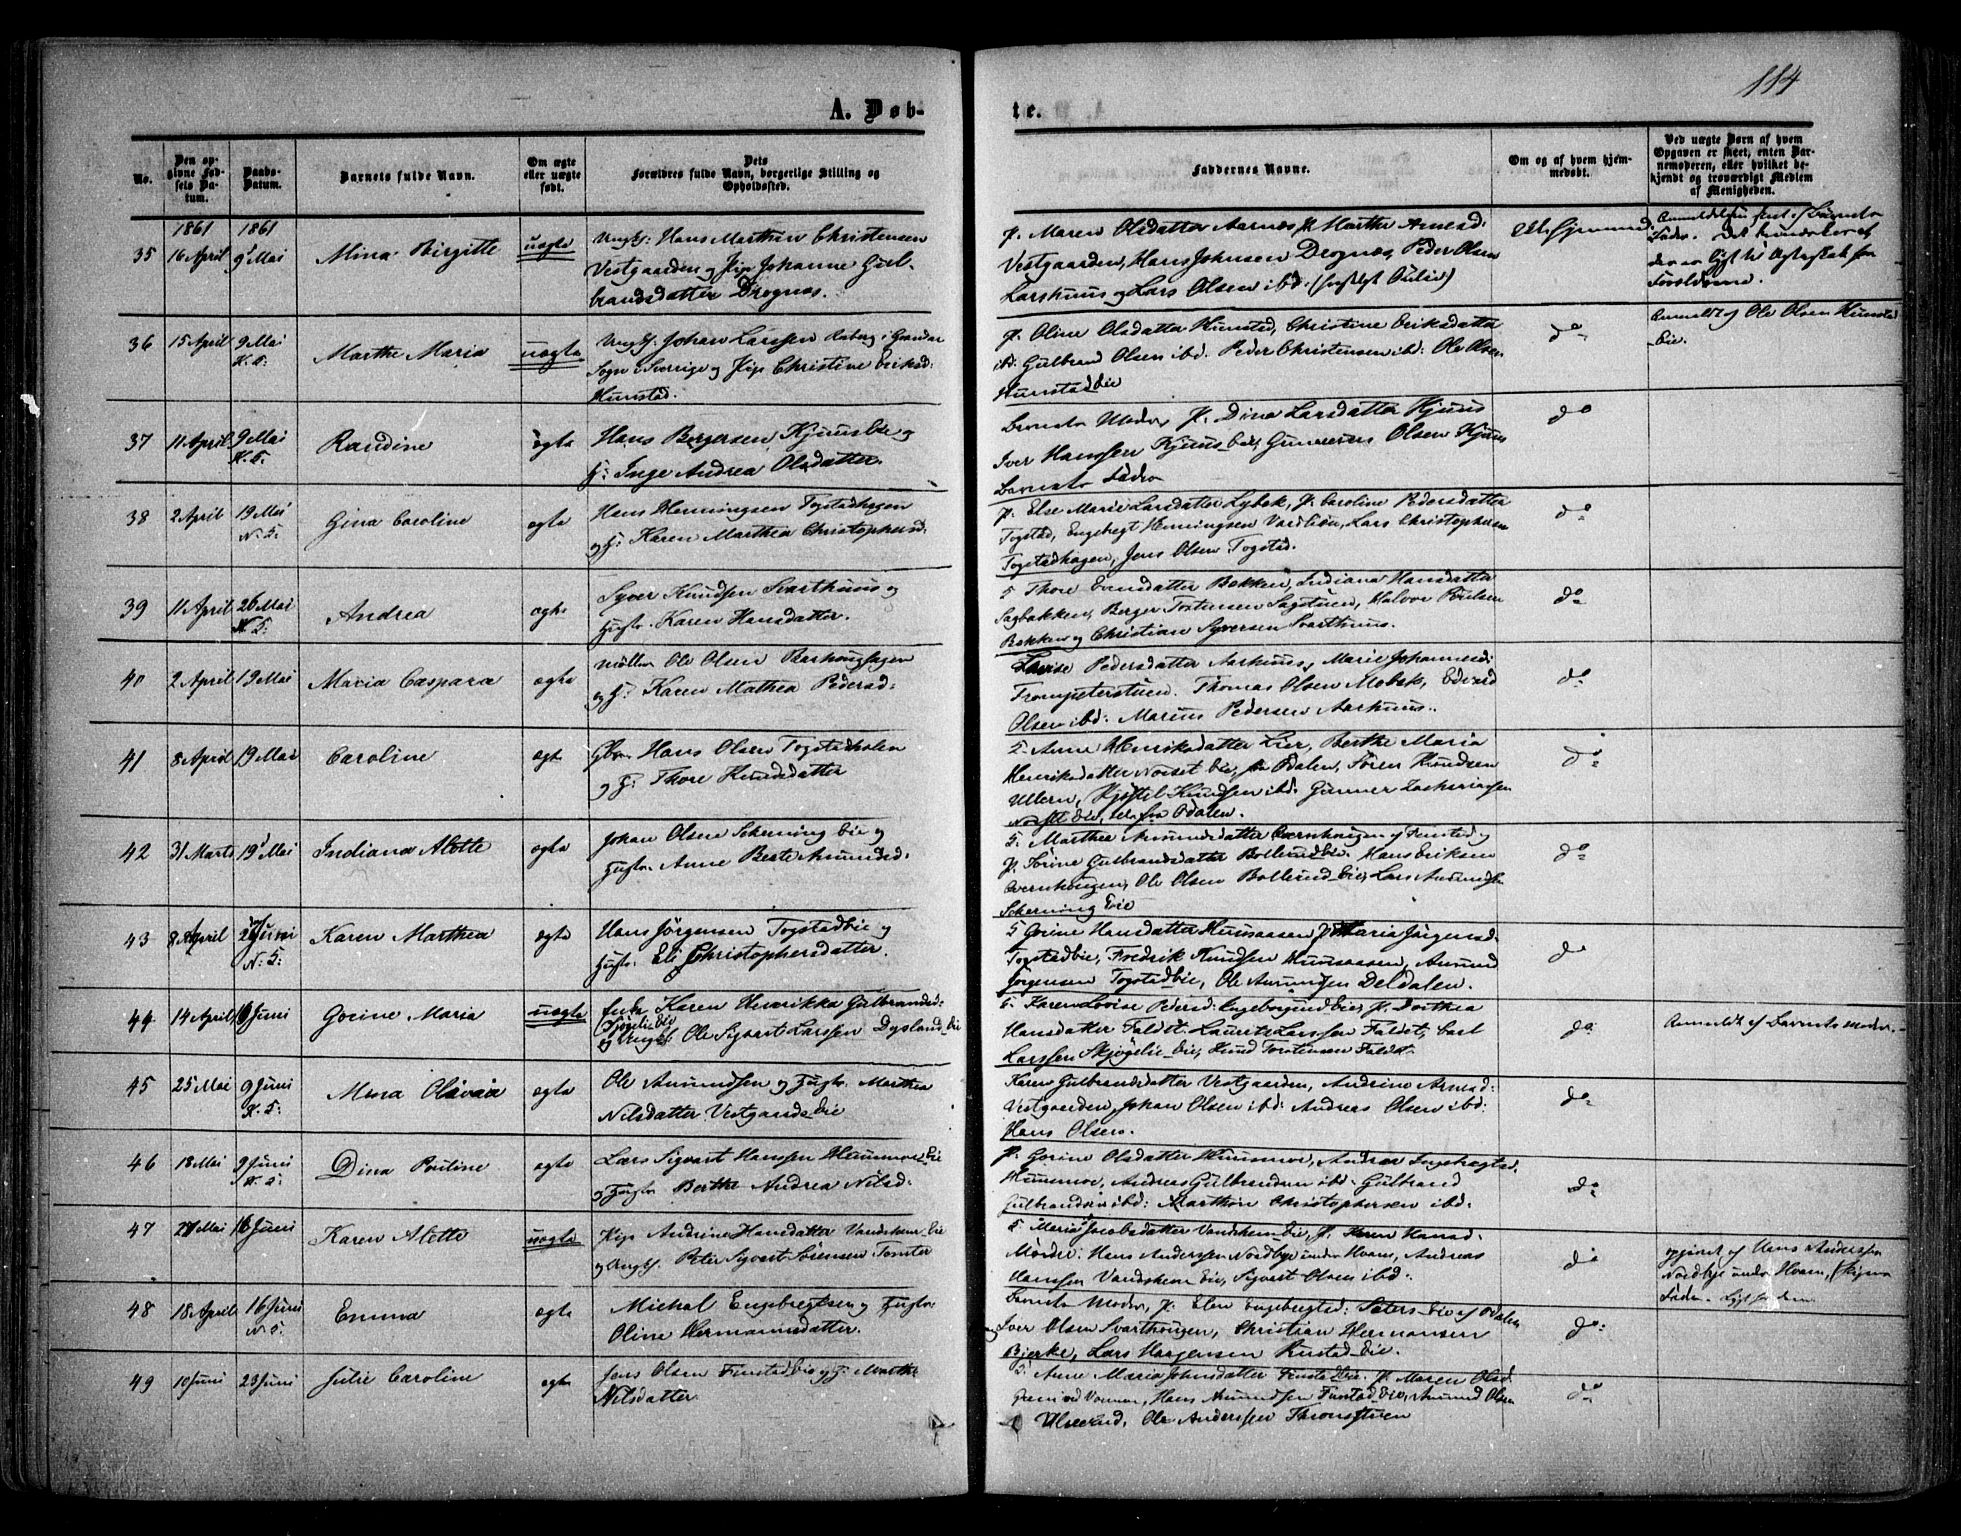 114
A. Døb-
te.
No.
Den op-
givne Fød-
sels Da-
tum.
Daabs-
Datum.
Barnets fulde Navn.
Om ægte
eller uægte
født.
Dets
Forældres fulde Navn, borgerlige Stilling og
Opholdssted.
Faddernes Navne.
Om og af hvem hjem-
medøbt.
Ved uægte Børn af hvem
Opgaven er skeet, enten Bar-
nemoderen, eller hvilket be-
kjendt og troværdigt Medlem
af Menigheden.
1861 1861
35 16 April 9 Mai Mina Birgitte uægte
Ungk: Hans Marthin Christensen
Vestgaarden og Pige Johanne Gul-
brandsdatter Drognæs.
P. Maren Olsdatter Aarnæs P. Marthe Arnesd:
Vestgaarden, Hans Johnsen Drognæs, Peder Olsen
Larshuus og Lars Olsen ibd.
36 15 April 9 Mai K. T: Marthe Maria uægte
Ungk: Johan Larssen
Sogn i Sverrige og Pige Christine Eriksd:
Hunstad.
P. Oline Olsdatter Hunstad, Christine Eriksdatter
ibd: Gulbrand Olsen ibd. Peder Christensen ibd: Ole Olsen
Hunstadeie
do
Anmeldt af Ole Olsen Hunstad
eie.
37 11 April 9 Mai K. T: Randine ægte
Hans Bergersen Kjuuseie og
H: Inge Andrea Olsdatter.
Barnets Moder, P. Dina Larsdatter Kjuus
Iver Hanssen Kjuuseie, Gunnerius Olsen Kjuus
Barnets Fader
do
38 2 April 19 Mai N. T: Gina Caroline ægte
Hans Henningsen Togstadhagen
og H: Karen Marthea Christophersd:
P. Else Marie Larsdatter Lybæk, P. Caroline Pedersdatter
Togstad, Engebregt Henningsen Vardlien, Lars Christophersen
Togstadhagen, Jens Olsen Togstad.
do
39 11 April 26 Mai N. T: Andrea ægte
Syver Knudsen Svarthuus og
Hustr. Karen Hansdatter.
Bakken, Indiana Hansdatter
Sagbakken, Berger Torstensen Sagstuen, Halvor Poulsen
Bakken og Christian Syversen Svarthuus.
do
40 2 April 19 Mai Maria Caspara ægte
Møller Ole Olsen
og H: Karen Mathea Pedersd:
Lovise Pedersdatter Aarhuus, Marie Johannesd:
Trompeterstuen. Thomas Olsen Mobæk, Edvard
Olsen ibd: Marius Pedersen Aarhuus.
do
41 8 April 19 Mai Caroline ægte
Gbr. Hans Olsen Togstadholen
og H: Thore Knudsdatter
Anne Henriksdatter Lier, Berthe Maria
Henriksdatter Norset eie, fra Odalen, Søren Knudsen
Ullern, Kjøstel Knudsen ibd: Gunner Zachariassen
Norset eie, fra Odalen.
do
42 31 Marts 19 Mai Indiana Alette ægte
Johan Olsen Skerning eie og
Hustr. Anne Beate Amundsd:
Marthea Amundsdatter Qvernhougen af Fenstad og
P. Sørine Gulbrandsdatter Bollerud eie. Hans Eriksen
Qvernhougen, Ole Olsen Bollerud eie, Lars Amundsen
Skerning Eie
do
43 8 April 2 Juni N: T: Karen Marthea ægte
Hans Jørgensen Togstad eie og
Hustr. Eli Christophersdatter.
Gorine Hansdatter P. Maria Jørgensd:
Togstadeie, Fredrik Knudsen Amund
Jørgensen Togstadeie, Ole Amundsen Deldalen.
do
44 14 April 16 Juni Gorine Maria uægte
Enke Karen Henrikka Gulbrandsd:
og Ungk: Ole Sigvart Larssen Dysland eie
Karen Lovise Pedersd: Ingeborgrud eie, P. Dorthea
Hansdatter Faldt. Laurits Larssen Faldt, Carl
Larssen Skjøgelie eie, Knud Torstensen Faldt.
do
Anmeldt af Barnets moder.
45 25 Mai 9 Juni K. T: Mina Olivia ægte
Ole Amundsen og Hustr. Marthea
Nilsdatter Vestgaardseie
Karen Gulbrandsdatter Vestgaarden, Andrine Arnesd:
Vestgaarden, Johan Olsen ibd: Andreas Olsen ibd:
Hans Olsen.
do
46 18 Mai 9 Juni Dina Pouline ægte
Lars Sigvart Hanssen Hummoe eie
og Hustr. Berthe Andrea Nilsd:
P. Gorine Olsdatter Hummoe, Andrea Ingebregtsd.
Hummoe, Andreas Gulbrandsen ibd. Gulbrand
Gulbrandsen ibd: Marthin Christophersen ibd:
do
47 27 Mai 16 Juni Karen Alette uægte
Pige Andrine Hansdatter Vandskem eie
og Ungk. Peter Sigvart Sørensen
Maria Jacobsdatter Vandskem eie, P. Karen Hansd:
Mørder: Hans Anderssen Nordbye under Hvam, Andreas
Hanssen Vandskem eie, Sigvart Olsen ibd:
do
opgivet af Hans Anderssen
Nordbye under Hvam,
48 18 April 16 Juni N. T: Emma ægte
Michal Engebregtsen og Hustr:
Oline Hermannsdatter.
Barnets Moder, P. Elen Engebregtsd: Sæters eie af Odalen
Iver Olsen Svarthougen, Christian Hermansen
Bjerke, Lars Haagensen Rustad eie.
do
49 10 Juni 23 Juni Julie Caroline ægte
Jens Olsen Finstad eie og H: Marthe
Nilsdatter
Anne Maria Johnsdatter P. Maren Olsd.
ved Vormen, Hans Amundsen Finstad eie, Amund Olsen
Ulverud, Ole Anderssen Thronstuen
do